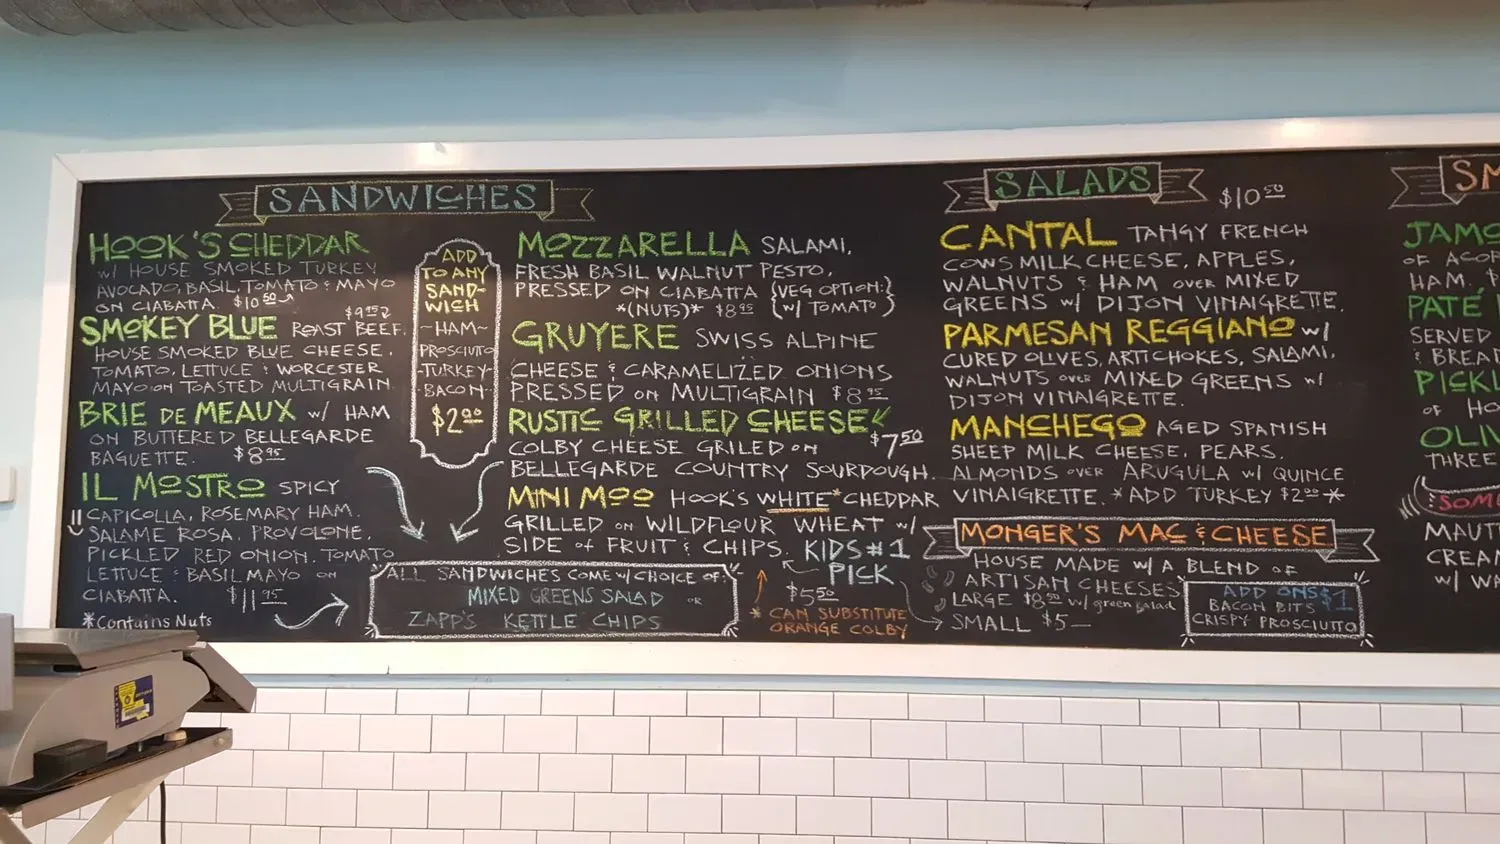 SANDWICHES
HOOK'S CHEDDAR
W/ HOUSE SMOKED TURKEY
AVOCADO, BASIL, TOMATO & MAYO
ON CIABATTA $10.50
SMOKEY BLUE ROAST BEEF,
HOUSE SMOKED BLUE CHEESE,
TOMATO, LETTUCE & WORCESTER
MAYO ON TOASTED MULTIGRAIN
BRIE DE MEAUX W/ HAM
ON BUTTERED BELLEGARDE
BAGUETTE. $8.95
IL MOSTRO SPICY
CAPICOLLA, ROSEMARY HAM,
SALAME ROSA, PROVOLONE,
PICKLED RED ONION, TOMATO
LETTUCE & BASIL MAYO ON
CIABATTA. $11.95
*Contains Nuts
ADD
TO ANY
SAND-
WICH
~HAM~
PROSCIUTTO
-TURKEY-
-BACON-
$2.00
MOZZARELLA SALAMI,
FRESH BASIL WALNUT PESTO,
PRESSED ON CIABATTA
*(NUTS)* $8.95
{VEG OPTION:}
(W/ TOMATO)
GRUYERE SWISS ALPINE
CHEESE & CARAMELIZED ONIONS
PRESSED ON MULTIGRAIN $8.95
RUSTIC GRILLED CHEESE
COLBY CHEESE GRILED ON $7.50
BELLEGARDE COUNTRY SOURDOUGH.
MINI MOO HOOK'S WHITE* CHEDDAR
GRILLED ON WILDFLOUR WHEAT W/
SIDE OF FRUIT & CHIPS.
KIDS #1
PICK
$5.50
* CAN SUBSTITUTE
ORANGE COLBY
ALL SANDWICHES COME W/ CHOICE OF:
MIXED GREENS SALAD OR
ZAPP'S KETTLE CHIPS
SALADS $10.50
CANTAL TANGY FRENCH
COWS MILK CHEESE, APPLES,
WALNUTS & HAM OVER MIXED
GREENS W/ DIJON VINAIGRETTE.
PARMESAN REGGIANO W/
CURED OLIVES, ARTICHOKES, SALAMI,
WALNUTS OVER MIXED GREENS W/
DIJON VINAIGRETTE.
MANCHEGO AGED SPANISH
SHEEP MILK CHEESE, PEARS,
ALMONDS OVER ARUGULA W/ QUINCE
VINAIGRETTE. *ADD TURKEY $2.00*
MONGER'S MAC & CHEESE
HOUSE MADE W/ A BLEND OF
ARTISAN CHEESES
LARGE $8.50 w/ green salad
SMALL $5—
ADD ONS $1
BACON BITS
CRISPY PROSCIUTTO
SM
JAMO
OF ACOR
HAM. $
PATÉ
SERVED
& BREAD
PICKL
OF HO
OLIV
THREE
SOM
MAUT
CREAM
W/ WA